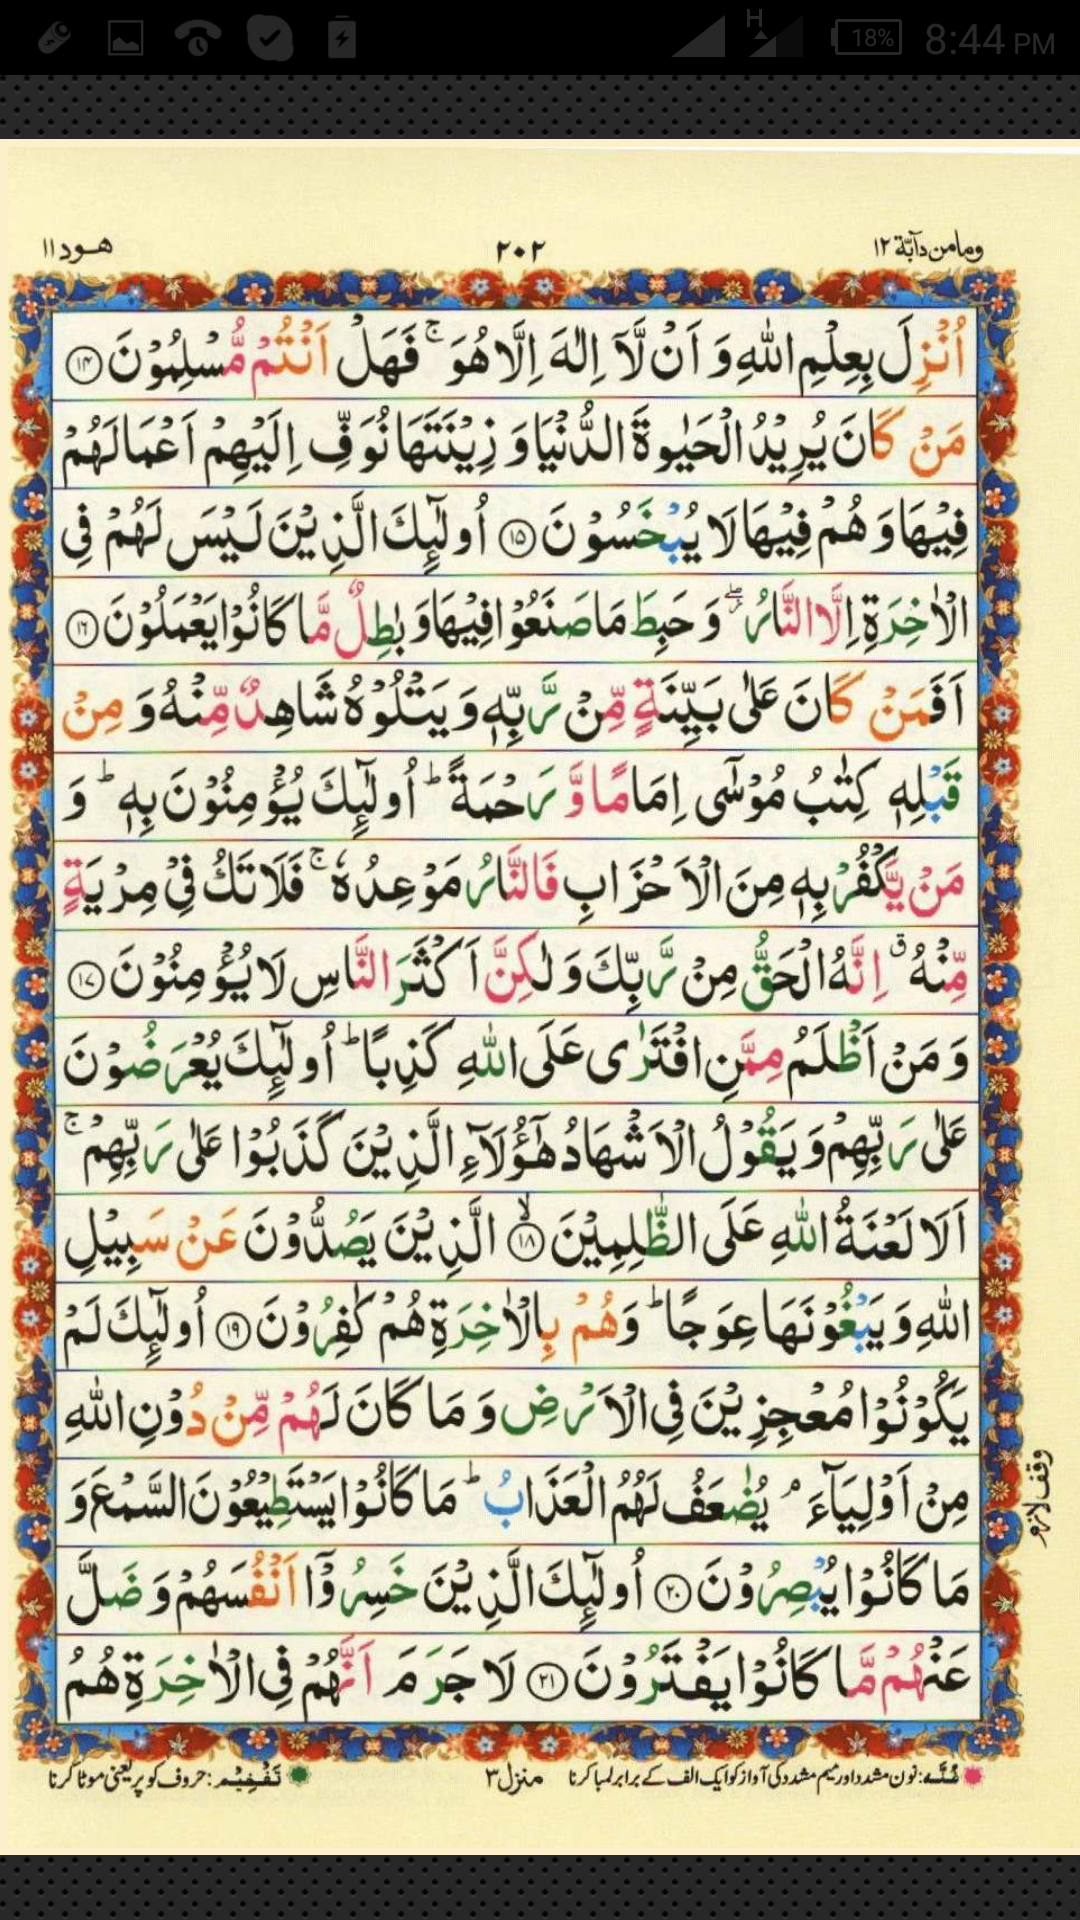 H
18%
8:44 PM
ومامن دآبّة ۱۲
۲۰۲
هود ۱۱
اُنْزِلَ بِعِلْمِ اللّٰهِ وَ اَنْ لَّاۤ اِلٰهَ اِلَّا هُوَ ۚ فَهَلْ اَنْتُمْ مُّسْلِمُوْنَ ﴿۱۴﴾
مَنْ كَانَ يُرِيْدُ الْحَيٰوةَ الدُّنْيَا وَ زِيْنَتَهَا نُوَفِّ اِلَيْهِمْ اَعْمَالَهُمْ
فِيْهَا وَ هُمْ فِيْهَا لَا يُبْخَسُوْنَ ﴿۱۵﴾ اُولٰٓئِكَ الَّذِيْنَ لَيْسَ لَهُمْ فِي
الْاٰخِرَةِ اِلَّا النَّارُ ۖ وَ حَبِطَ مَا صَنَعُوْا فِيْهَا وَ بٰطِلٌ مَّا كَانُوْا يَعْمَلُوْنَ ﴿۱۶﴾
اَفَمَنْ كَانَ عَلٰى بَيِّنَةٍ مِّنْ رَّبِّهٖ وَ يَتْلُوْهُ شَاهِدٌ مِّنْهُ وَ مِنْ
قَبْلِهٖ كِتٰبُ مُوْسٰۤى اِمَامًا وَّ رَحْمَةً ؕ اُولٰٓئِكَ يُؤْمِنُوْنَ بِهٖ ؕ وَ
مَنْ يَّكْفُرْ بِهٖ مِنَ الْاَحْزَابِ فَالنَّارُ مَوْعِدُهٗ ۚ فَلَا تَكُ فِيْ مِرْيَةٍ
مِّنْهُ ۗ اِنَّهُ الْحَقُّ مِنْ رَّبِّكَ وَ لٰكِنَّ اَكْثَرَ النَّاسِ لَا يُؤْمِنُوْنَ ﴿۱۷﴾
وَ مَنْ اَظْلَمُ مِمَّنِ افْتَرٰى عَلَى اللّٰهِ كَذِبًا ؕ اُولٰٓئِكَ يُعْرَضُوْنَ
عَلٰى رَبِّهِمْ وَ يَقُوْلُ الْاَشْهَادُ هٰۤؤُلَآءِ الَّذِيْنَ كَذَبُوْا عَلٰى رَبِّهِمْ ۚ
اَلَا لَعْنَةُ اللّٰهِ عَلَى الظّٰلِمِيْنَ ﴿۱۸﴾ۙ الَّذِيْنَ يَصُدُّوْنَ عَنْ سَبِيْلِ
اللّٰهِ وَ يَبْغُوْنَهَا عِوَجًا ؕ وَ هُمْ بِالْاٰخِرَةِ هُمْ كٰفِرُوْنَ ﴿۱۹﴾ اُولٰٓئِكَ لَمْ
يَكُوْنُوْا مُعْجِزِيْنَ فِي الْاَرْضِ وَ مَا كَانَ لَهُمْ مِّنْ دُوْنِ اللّٰهِ
مِنْ اَوْلِيَآءَ ۘ يُضٰعَفُ لَهُمُ الْعَذَابُ ؕ مَا كَانُوْا يَسْتَطِيْعُوْنَ السَّمْعَ وَ
وقف لازم
مَا كَانُوْا يُبْصِرُوْنَ ﴿۲۰﴾ اُولٰٓئِكَ الَّذِيْنَ خَسِرُوْۤا اَنْفُسَهُمْ وَ ضَلَّ
عَنْهُمْ مَّا كَانُوْا يَفْتَرُوْنَ ﴿۲۱﴾ لَا جَرَمَ اَنَّهُمْ فِي الْاٰخِرَةِ هُمُ
غُنَّه: نون مشدد اور میم مشدد کی آواز کو ایک الف کے برابر لمبا کرنا
منزل ۳
تَفْخِیْم: حروف کو پر یعنی موٹا کرنا